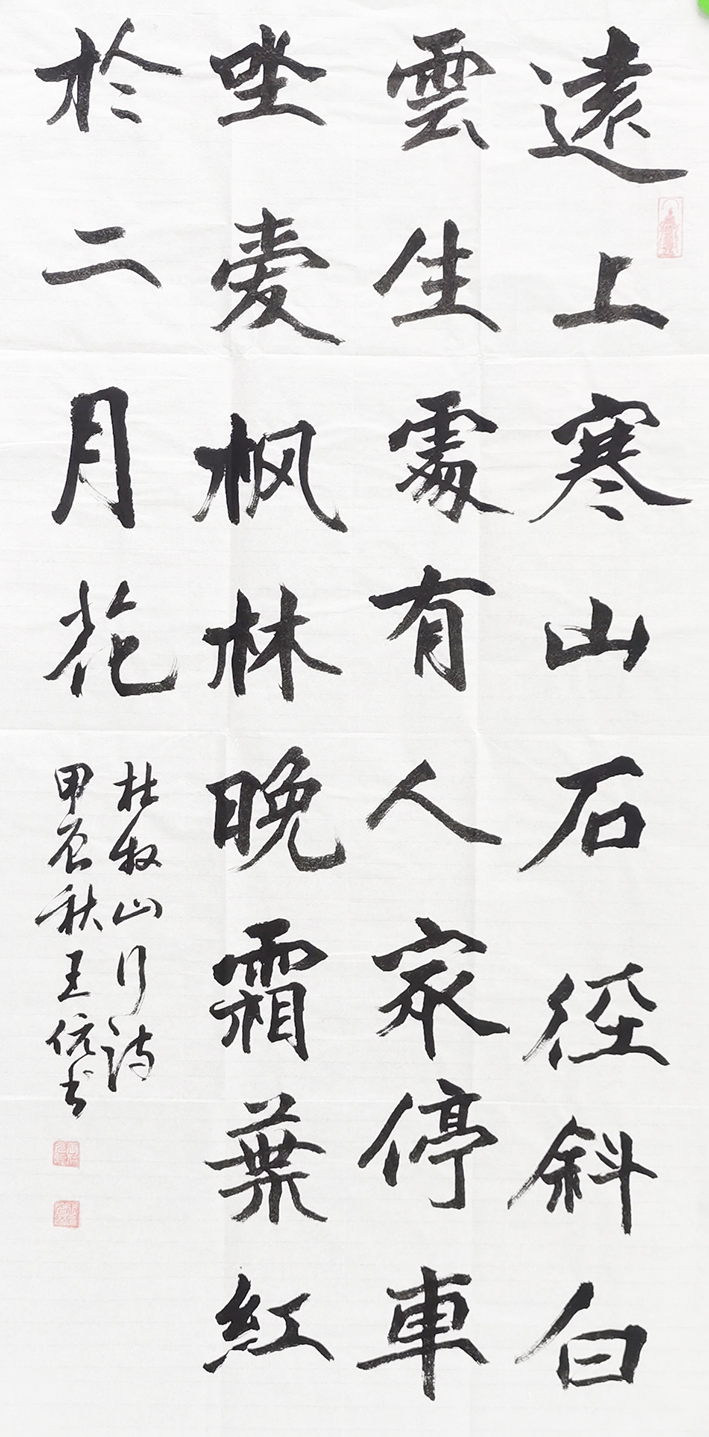 遠上寒山石徑斜白
雲生處有人家停車
坐愛枫林晚霜葉紅
於二月花
杜牧山行诗
甲辰秋王伉书